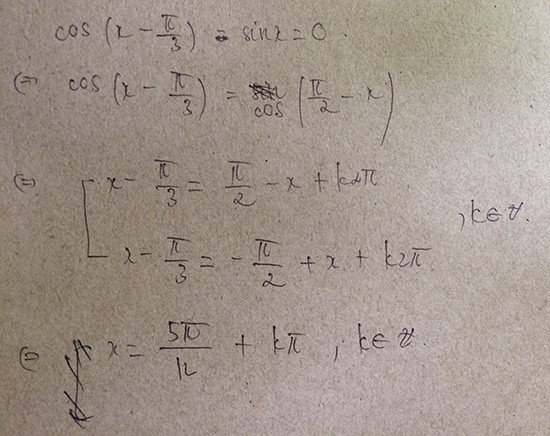 cos (x - π/3) - sinx = 0.
(=) cos (x - π/3) = cos (π/2 - x)
(=) [ x - π/3 = π/2 - x + k2π
x - π/3 = - π/2 + x + k2π. , k ∈ Z.
(=) x = 5π/12 + kπ , k ∈ Z.